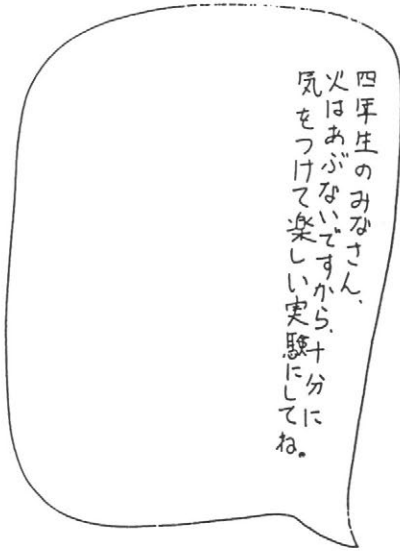 四年生のみなさん、
火はあぶないですから、十分に
気をつけて楽しい実験にしてね。